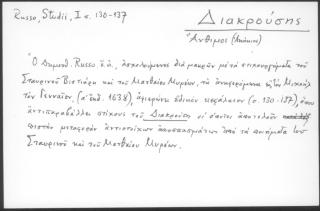 Russo, Studii, I σ. 130-137
Διακρούσης
Ἄνθιμος
Ὁ Δημοσθ. Russo ἔ.ἀ., ἀσχολούμενος διὰ μακρῶν μὲ τὰ στιχουργήματα τοῦ
Σταυρινοῦ Βιστιάρη καὶ τοῦ Ματθαίου Μυρέων, τὰ ἀναφερόμενα εἰς τὸν Μιχαὴλ
τὸν Γενναῖον, (α' ἔκδ. 1638), ἀφιερώνει εἰδικὸν κεφάλαιον (σ. 130-137), ὅπου
ἀντιπαραβάλλει στίχους τοῦ Διακρούση οἱ ὁποῖοι ἀποτελοῦν
πιστὴν μεταφορὰν ἀντιστοίχων ἀποσπασμάτων ἀπὸ τὰ ποιήματα τοῦ
Σταυρινοῦ καὶ τοῦ Ματθαίου Μυρέων.